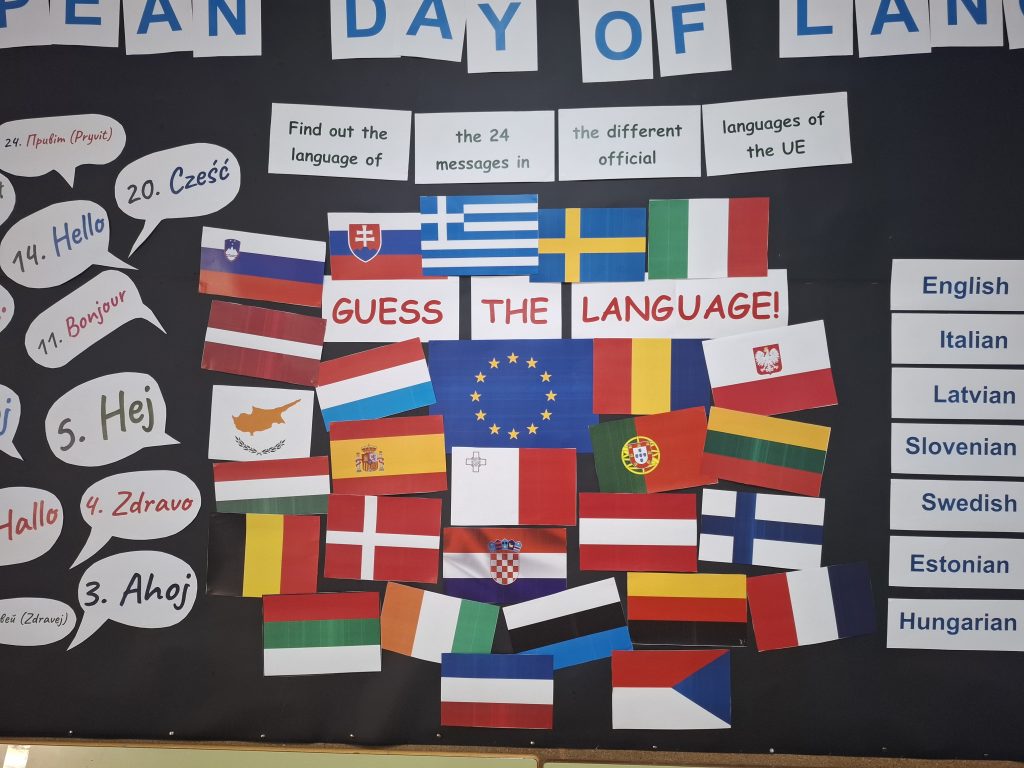 PEAN DAY OF LAN
Find out the
language of
the 24
messages in
the different
official
languages of
the UE
24. Привіт (Pryvit)
20. Cześć
14. Hello
11. Bonjour
5. Hej
Hallo
4. Zdravo
3. Ahoj
вей (Zdravej)
GUESS THE LANGUAGE!
English
Italian
Latvian
Slovenian
Swedish
Estonian
Hungarian